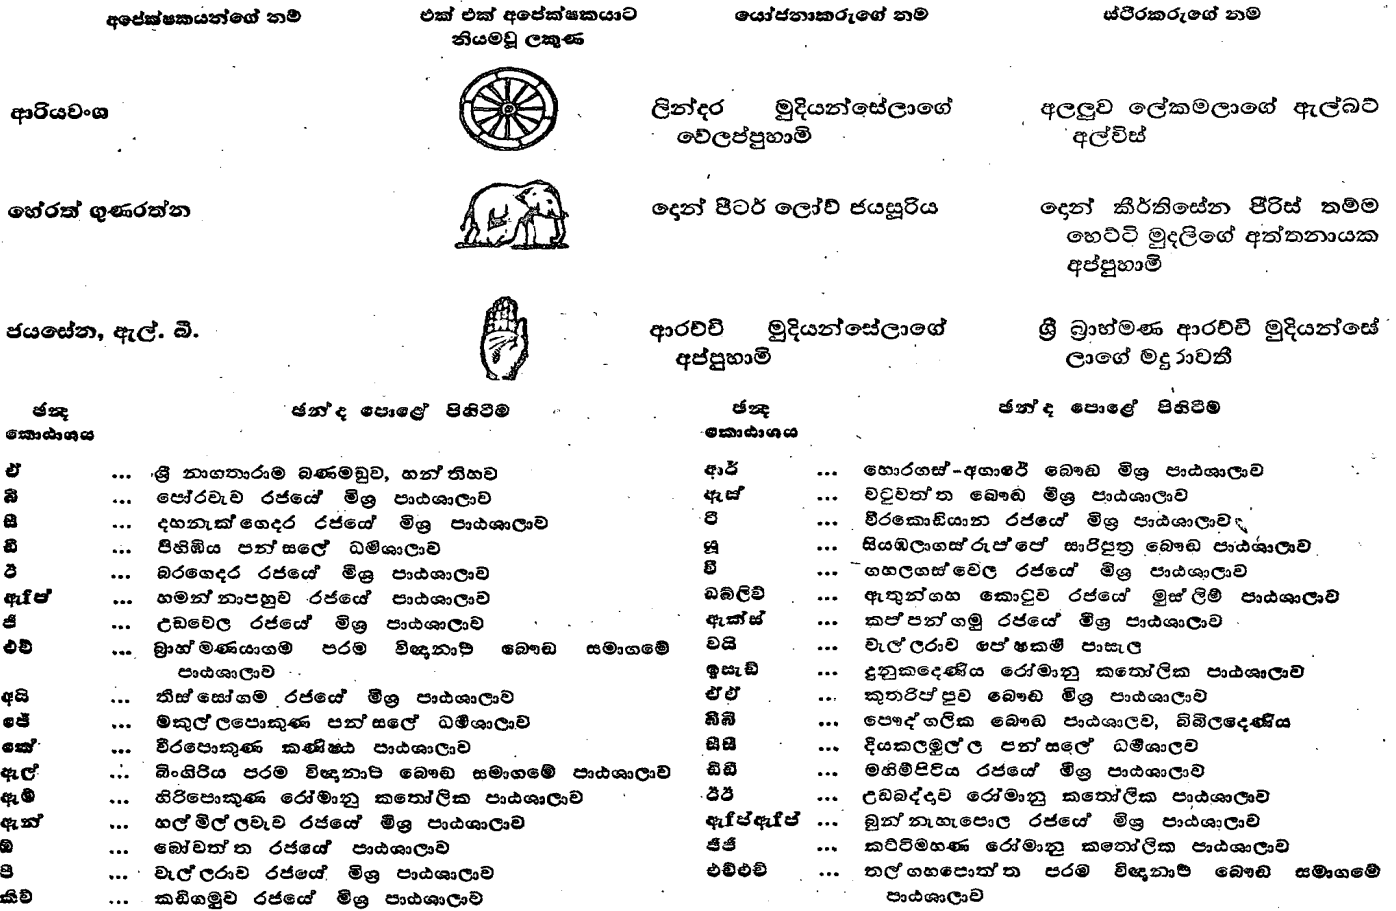 අපේක්ෂකයන්ගේ නම්
එක් එක් අපේක්ෂකයාට
නියමවූ ලකුණ
යෝජනාකරුගේ නම
ස්ථිරකරුගේ නම
ආරියවංශ
ලින්දර මුදියන්සේලාගේ
වේලප්පුහාමි
අලලුව ලේකමලාගේ ඇල්බට්
අල්විස්
හේරත් ගුණරත්න
දොන් පීටර් ලෝඩ් ජයසූරිය
දොන් කීර්තිසේන පීරිස් තම්ම
හෙට්ටි මුදලිගේ අත්තනායක
අප්පුහාමි
ජයසේන, ඇල්. බී.
ආරච්චි මුදියන්සේලාගේ
අප්පුහාමි
ශ්‍රී බ්‍රාහ්මණ ආරච්චි මුදියන්සේ
ලාගේ මදුරාවතී
ඡන්ද
කොඨාශය
ඡන්ද පොළේ පිහිටීම
ඒ ... ශ්‍රී නාගතාරාම බණමඩුව, හන්තිහව
බී ... පෝරවැව රජයේ මිශ්‍ර පාඨශාලාව
සී ... දහනැක්ගෙදර රජයේ මිශ්‍ර පාඨශාලාව
ඩී ... පිහිඹිය පන්සලේ ධර්මශාලාව
ඊ ... බරගෙදර රජයේ මිශ්‍ර පාඨශාලාව
ඇෆ් ... හමන්නාපහුව රජයේ පාඨශාලාව
ජී ... උඩවෙල රජයේ මිශ්‍ර පාඨශාලාව
එච් ... බ්‍රාහ්මණයාගම පරම විඥානාර්ථ බෞද්ධ සමාගමේ
පාඨශාලාව
අයි ... තිස්සෝගම රජයේ මිශ්‍ර පාඨශාලාව
ජේ ... මකුල්ලපොකුණ පන්සලේ ධර්මශාලාව
කේ ... වීරපොකුණ කණිෂ්ඨ පාඨශාලාව
ඇල් ... බිංගිරිය පරම විඥානාර්ථ බෞද්ධ සමාගමේ පාඨශාලාව
ඇම් ... හිරිපොකුණ රෝමානු කතෝලික පාඨශාලාව
ඇන් ... හල්මිල්ලවැව රජයේ මිශ්‍ර පාඨශාලාව
ඕ ... බෝවත්ත රජයේ පාඨශාලාව
පී ... වැල්ලරාව රජයේ මිශ්‍ර පාඨශාලාව
කිව් ... කඩිගමුව රජයේ මිශ්‍ර පාඨශාලාව
ඡන්ද
කොඨාශය
ඡන්ද පොළේ පිහිටීම
ආර් ... හොරගස්-අගාරේ බෞද්ධ මිශ්‍ර පාඨශාලාව
ඇස් ... වටුවත්ත බෞද්ධ මිශ්‍ර පාඨශාලාව
ටී ... වීරකොඩියාන රජයේ මිශ්‍ර පාඨශාලාව
යූ ... සියඹලාගස්රුප්පේ සාරිපුත්‍ර බෞද්ධ පාඨශාලාව
වී ... ගහලගස්වෙල රජයේ මිශ්‍ර පාඨශාලාව
ඩබ්ලිව් ... ඇතුන්ගහ කොටුව රජයේ මුස්ලිම් පාඨශාලාව
ඇක්ස් ... කප්පන්ගමු රජයේ මිශ්‍ර පාඨශාලාව
වයි ... වැල්ලරාව පේෂකර්ම පාසැල
ඉසැඩ් ... දුනුකදෙණිය රෝමානු කතෝලික පාඨශාලාව
ඒඒ ... කුතරිප්පුව බෞද්ධ මිශ්‍ර පාඨශාලාව
බීබී ... පෞද්ගලික බෞද්ධ පාඨශාලව, බිබිලදෙණිය
සීසී ... දියකලමුල්ල පන්සලේ ධර්මශාලව
ඩීඩී ... මහිමිපිටිය රජයේ මිශ්‍ර පාඨශාලාව
ඊඊ ... උඩබද්දාව රෝමානු කතෝලික පාඨශාලාව
ඇෆ්ඇෆ් ... බුන්නැහැපොල රජයේ මිශ්‍ර පාඨශාලාව
ජීජී ... කට්ටිමහණ රෝමානු කතෝලික පාඨශාලාව
එච්එච් ... තල්ගහපොත්ත පරම විඥානාර්ථ බෞද්ධ සමාගමේ
පාඨශාලාව